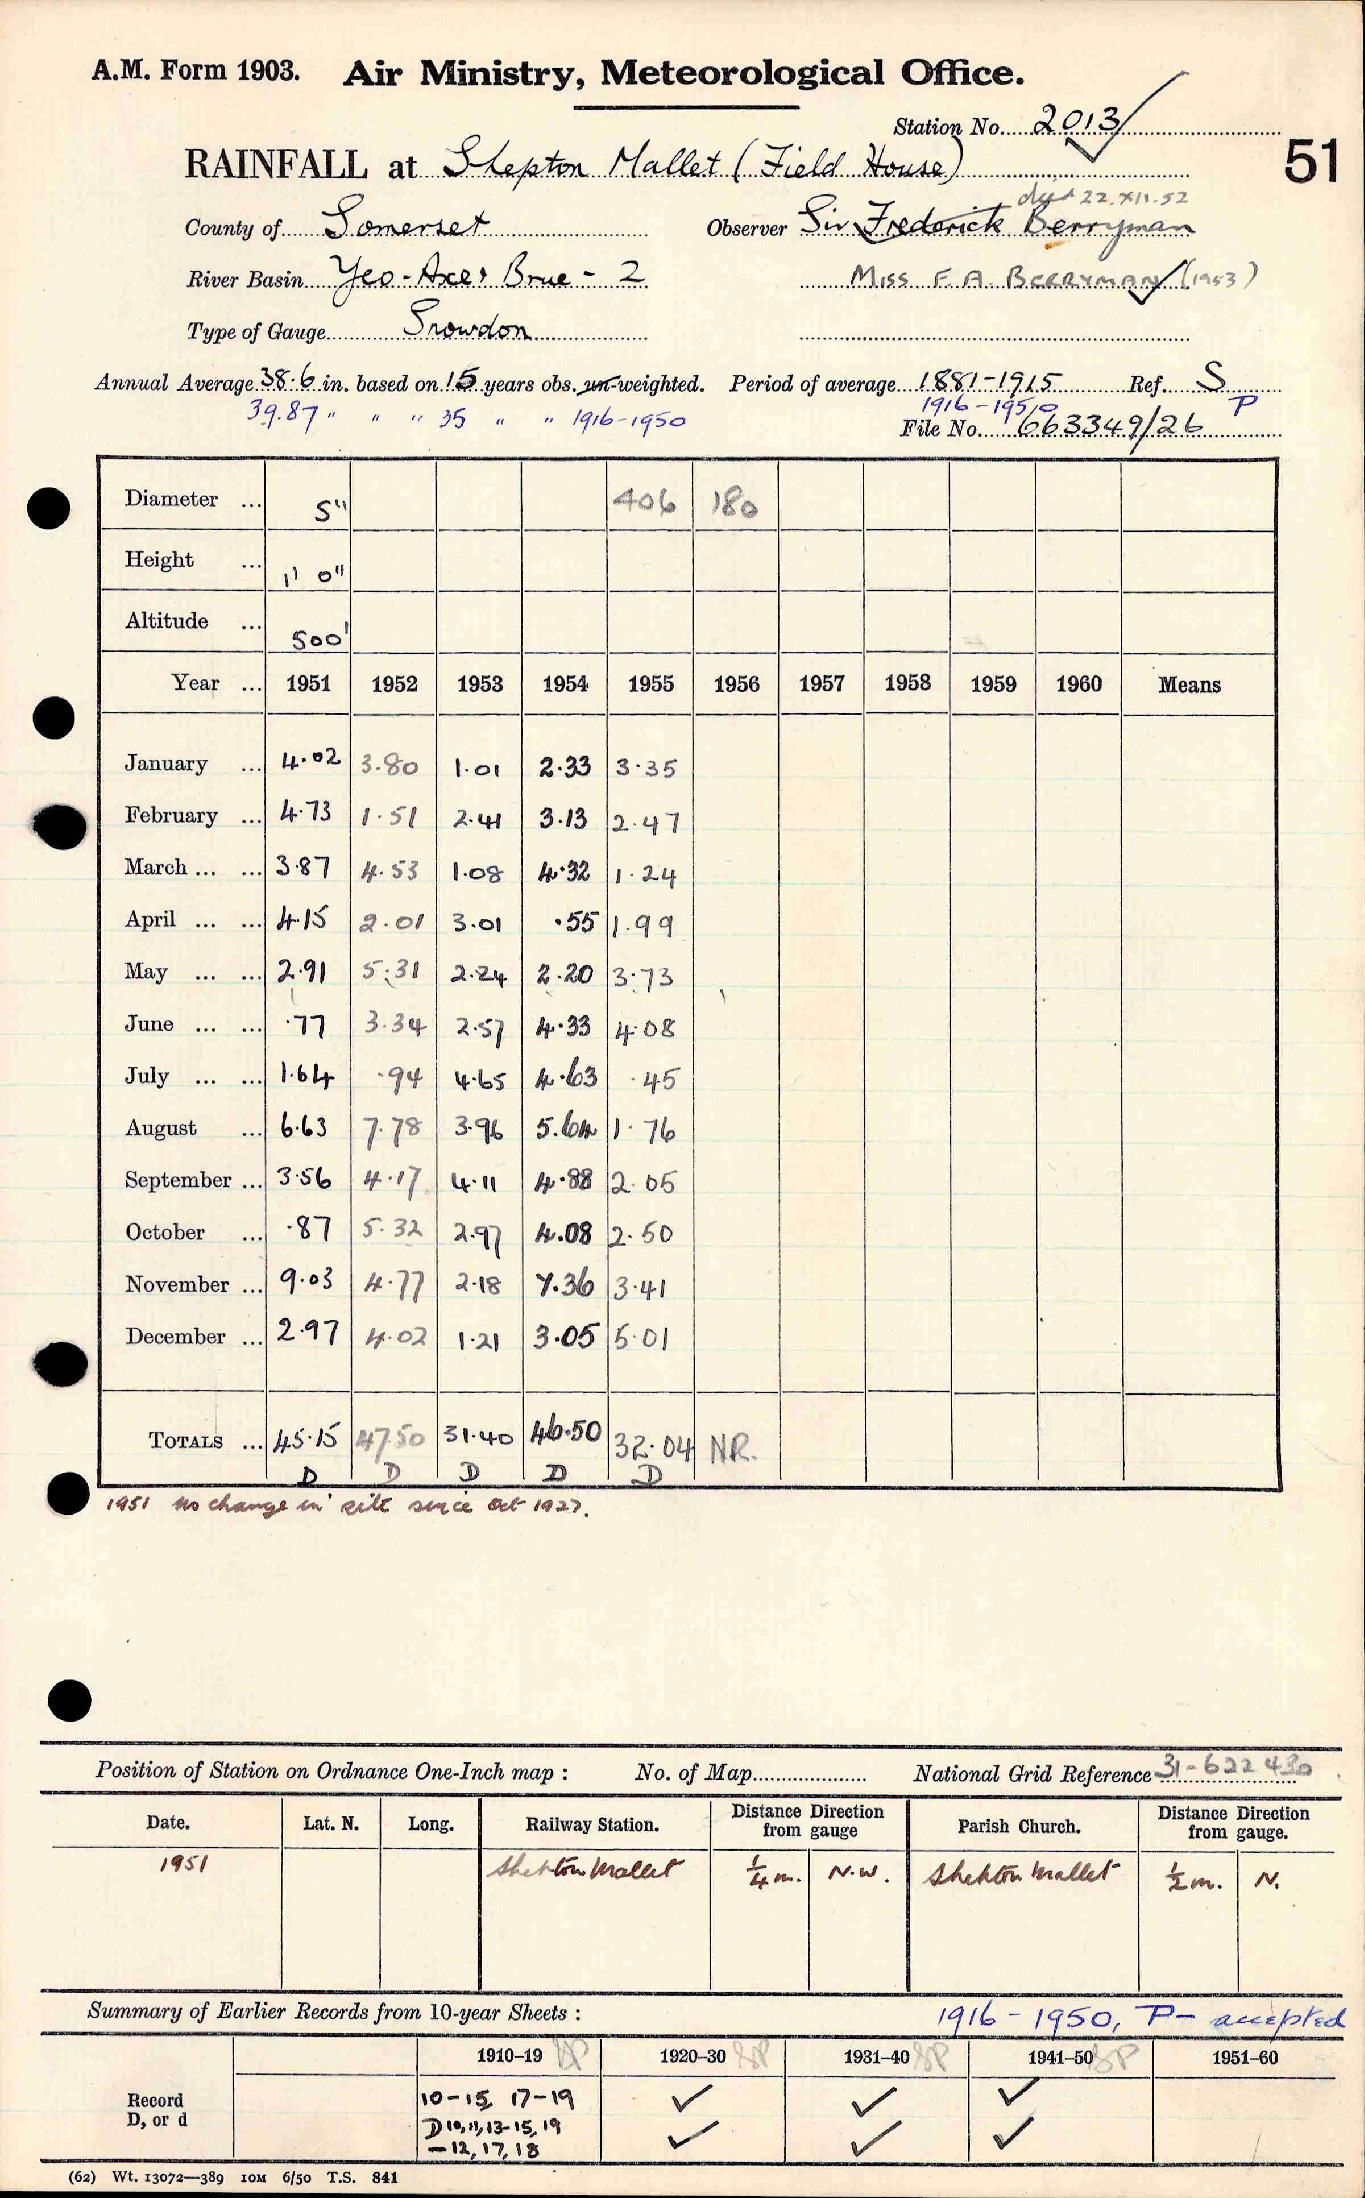 A.M. Form 1903. Air Ministry, Meteorological Office.
Station No. 2013
51
RAINFALL at Shepton Mallet (Field House)
died 22.XII.52
County of Somerset Observer Sir Frederick Berryman
River Basin Yeo-Axe & Brue - 2 MISS F. A. BERRYMAN (1953)
Type of Gauge Snowdon
Annual Average 38.6 in. based on 15 years obs. un-weighted. Period of average 1881-1915 Ref. S
39.87 " " " 35 " " 1916-1950 1916-1950 P
File No. 663349/26
Diameter ... 5" 406 180
Height ... 1' 0"
Altitude ... 500'
Year ... 1951 1952 1953 1954 1955 1956 1957 1958 1959 1960 Means
January ... 4.02 3.80 1.01 2.33 3.35
February ... 4.73 1.51 2.41 3.13 2.47
March ... ... 3.87 4.53 1.08 4.32 1.24
April ... ... 4.15 2.01 3.01 .55 1.99
May ... ... 2.91 5.31 2.24 2.20 3.73
June ... ... .77 3.34 2.57 4.33 4.08
July ... ... 1.64 .94 4.65 4.63 .45
August ... 6.63 7.78 3.96 5.64 1.76
September ... 3.56 4.17 4.11 4.88 2.05
October ... .87 5.32 2.97 4.08 2.50
November ... 9.03 4.77 2.18 7.36 3.41
December ... 2.97 4.02 1.21 3.05 5.01
TOTALS ... 45.15 47.50 31.40 46.50 32.04 NR.
D D D D D
1951 No change in site since Oct 1927.
Position of Station on Ordnance One-Inch map : No. of Map National Grid Reference 31-622430
Date. Lat. N. Long. Railway Station. Distance Direction from gauge Parish Church. Distance Direction from gauge.
1951 Shepton Mallet 1/4 m. N.W. Shepton Mallet 1/2 m. N.
Summary of Earlier Records from 10-year Sheets : 1916-1950, P- accepted
1910-19 1920-30 1931-40 1941-50 1951-60
Record 10-15, 17-19 ✓ ✓ ✓
D, or d D 10,11,13-15,19 ✓ ✓ ✓
-12,17,18
(62) Wt. 13072—389 10M 6/50 T.S. 841